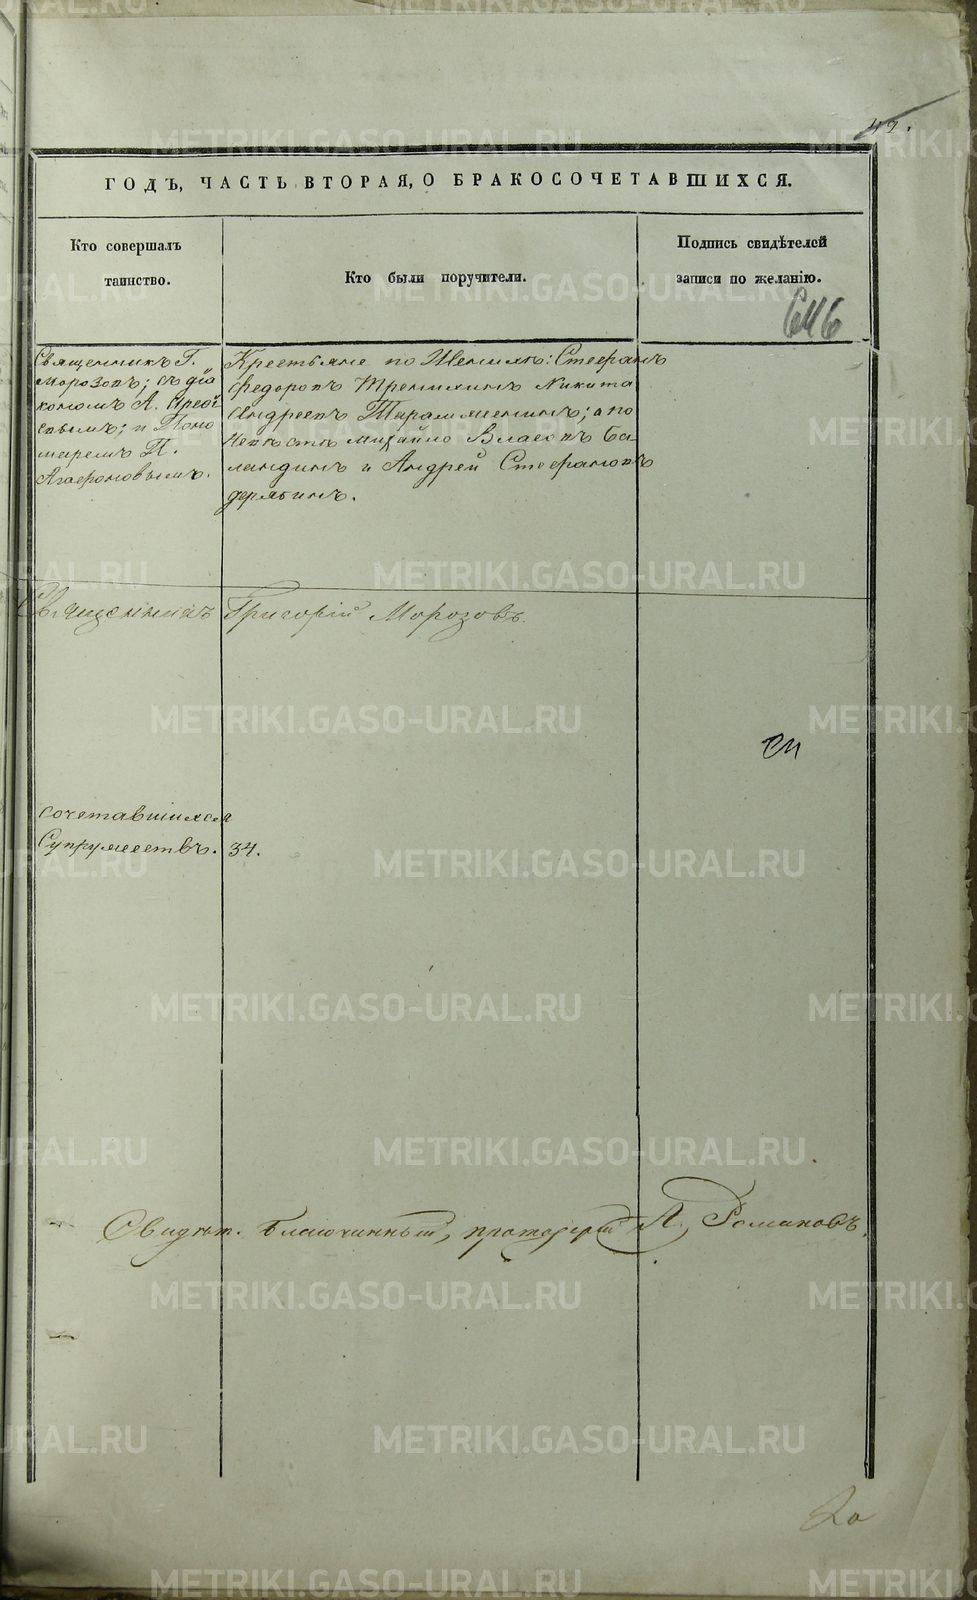 42.
ГОДЪ, ЧАСТЬ ВТОРАЯ, О БРАКОСОЧЕТАВШИХСЯ.
Кто совершалъ
таинство.
Кто были поручители.
Подпись свидѣтелей
записи по желанію.
Священникъ Г.
Морозовъ; съ діа
кономъ А.
и Поно
маремъ П.
Агафоновымъ.
Крестьяне по Женихѣ: Стефанъ
Федоровъ Никита
Андреевъ; а по
Невѣстѣ Михайло Власовъ Ба
ландинъ и Андрей Стефановъ
Дерябинъ.
Священникъ Григорій Морозовъ.
сочетавшихся
Супружествъ. 34.
Свидѣт. Благочинный, протоіерей А. Романовъ.
METRIKI.GASO-URAL.RU